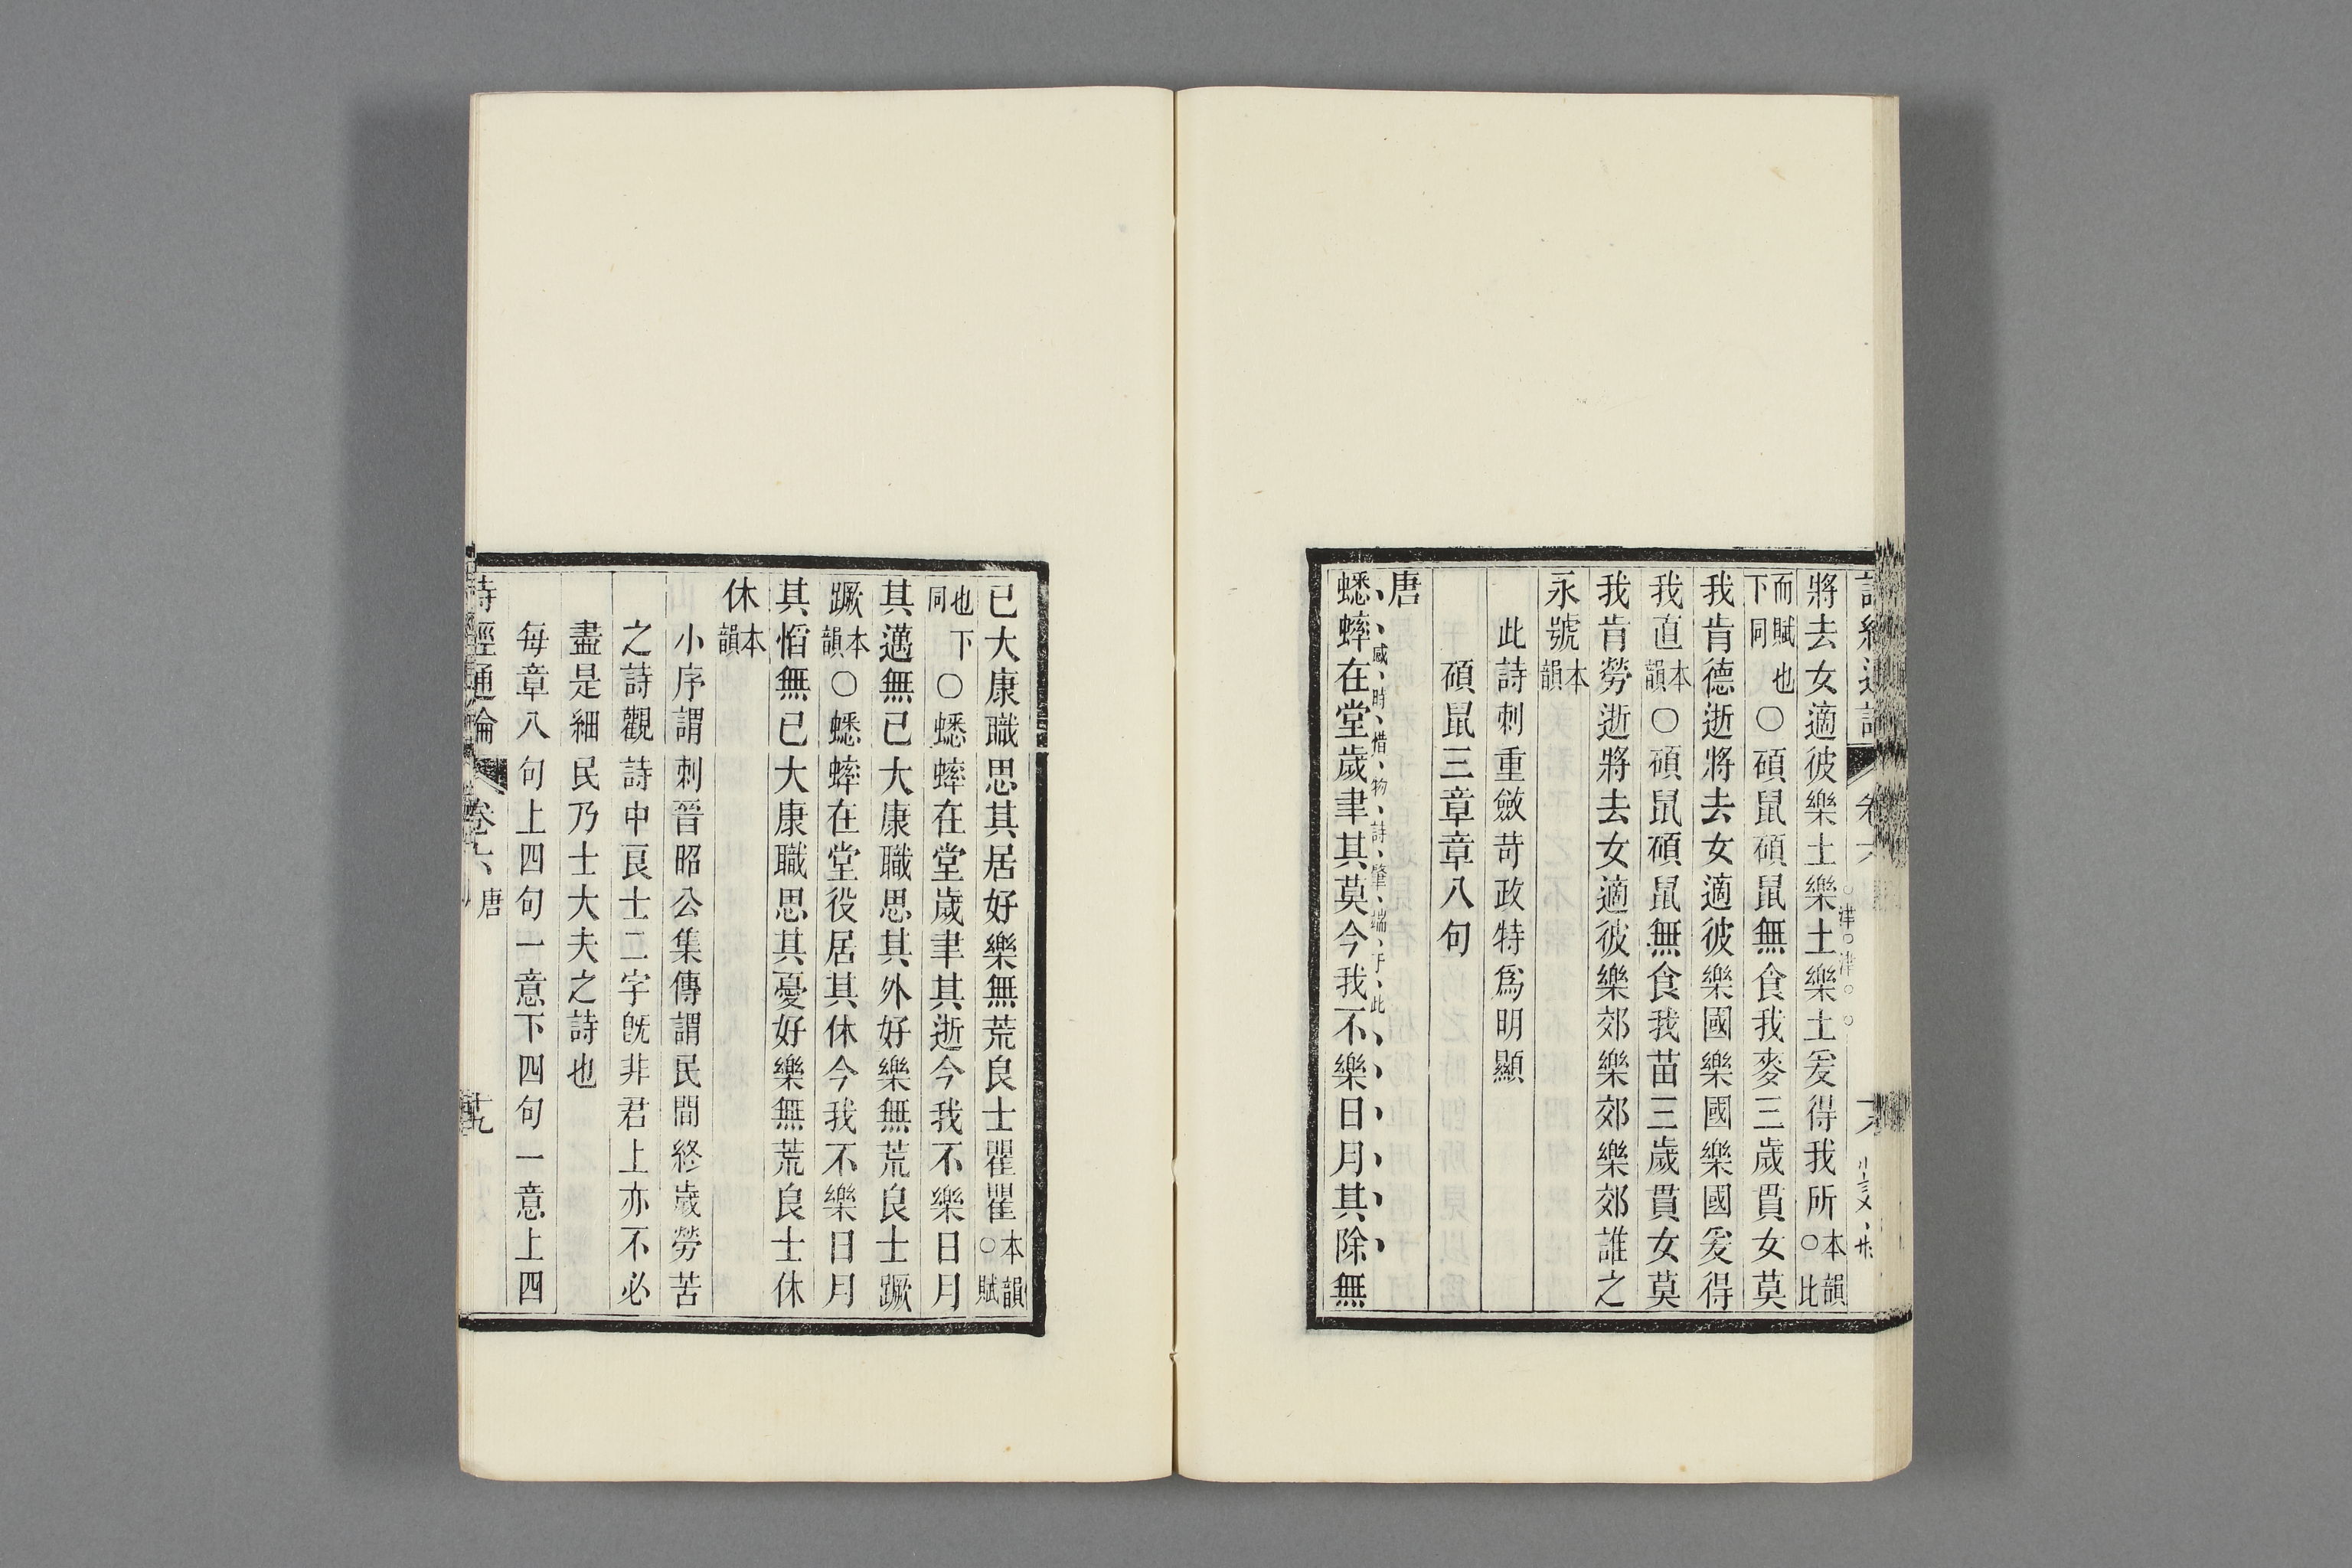 詩經通論
卷六
將去女適彼樂土樂土樂土爰得我所本韻○比
津津
而賦也下同○碩鼠碩鼠無食我麥三歲貫女莫
我肯德逝將去女適彼樂國樂國樂國爰得
我直本韻○碩鼠碩鼠無食我苗三歲貫女莫
我肯勞逝將去女適彼樂郊樂郊樂郊誰之
永號本韻
此詩刺重斂苛政特爲明顯
碩鼠三章章八句
唐
感時惜物詩肇端于此
蟋蟀在堂歲聿其莫今我不樂日月其除無
已大康職思其居好樂無荒良士瞿瞿本韻○賦
也下同○蟋蟀在堂歲聿其逝今我不樂日月
其邁無已大康職思其外好樂無荒良士蹶
蹶本韻○蟋蟀在堂役居其休今我不樂日月
其慆無已大康職思其憂好樂無荒良士休
休本韻
小序謂刺晉昭公集傳謂民間終歲勞苦
之詩觀詩中良士二字旣非君上亦不必
盡是細民乃士大夫之詩也
每章八句上四句一意下四句一意上四
詩經通論 卷六 唐 十九